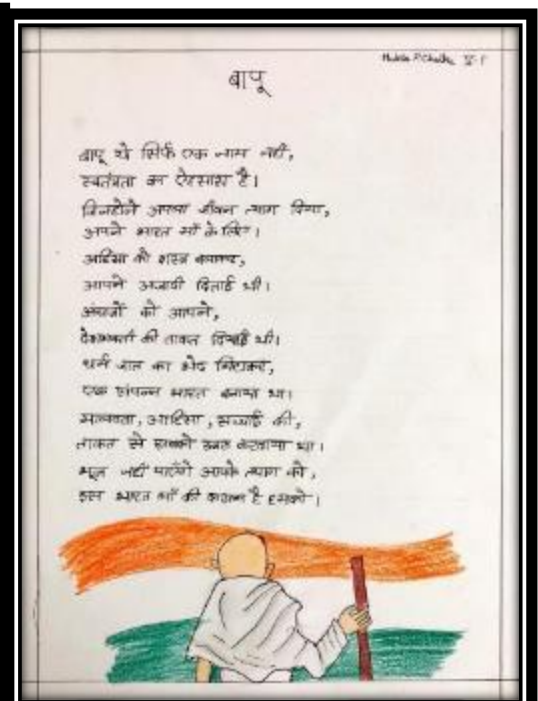 बापू
बापू ये सिर्फ एक नाम नहीं,
स्वतंत्रता का ऐहसास है।
जिन्होंने अपना जीवन त्याग दिया,
अपने भारत माँ के लिए।
अहिंसा को शस्त्र बनाकर,
आपने आजादी दिलाई थी।
अंग्रेजों को आपने,
देशभक्ती की ताकत दिखाई थी।
धर्म जात का भेद मिटाकर,
एक संपन्न भारत बनाया था।
मानवता, अहिंसा, सच्चाई की,
ताकत से सबको करवाया था।
भूल नहीं पाएँगे आपके त्याग को,
इस भारत माँ की कसम है हमको।